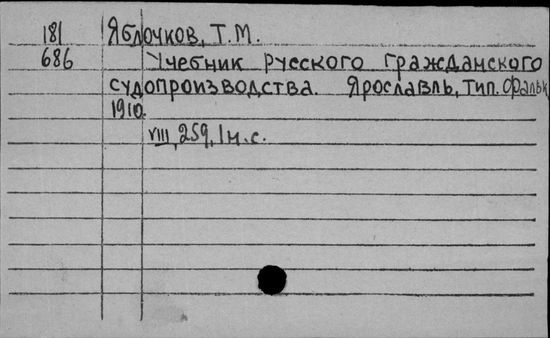 181 Яблочков, Т.М.
686 Учебник русского гражданского
судопроизводства. Ярославль, тип. Фальк
1910.
VIII, 259, 1 н.с.